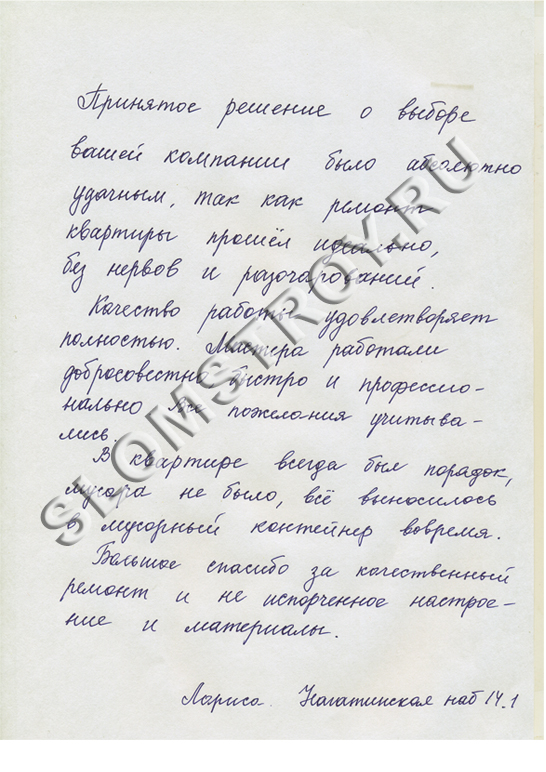 Принятое решение о выборе
вашей компании было абсолютно
удачным, так как ремонт
квартиры прошёл идеально,
без нервов и разочарований.
Качество работы удовлетворяет
полностью. Мастера работали
добросовестно быстро и профессио-
нально все пожелания учитыва-
лись.
В квартире всегда был порядок,
мусора не было, всё выносилось
в мусорный контейнер вовремя.
Большое спасибо за качественный
ремонт и не испорченное настрое-
ние и материалы.
Лариса. Нагатинская наб 14.1
SLOMSTROY.RU